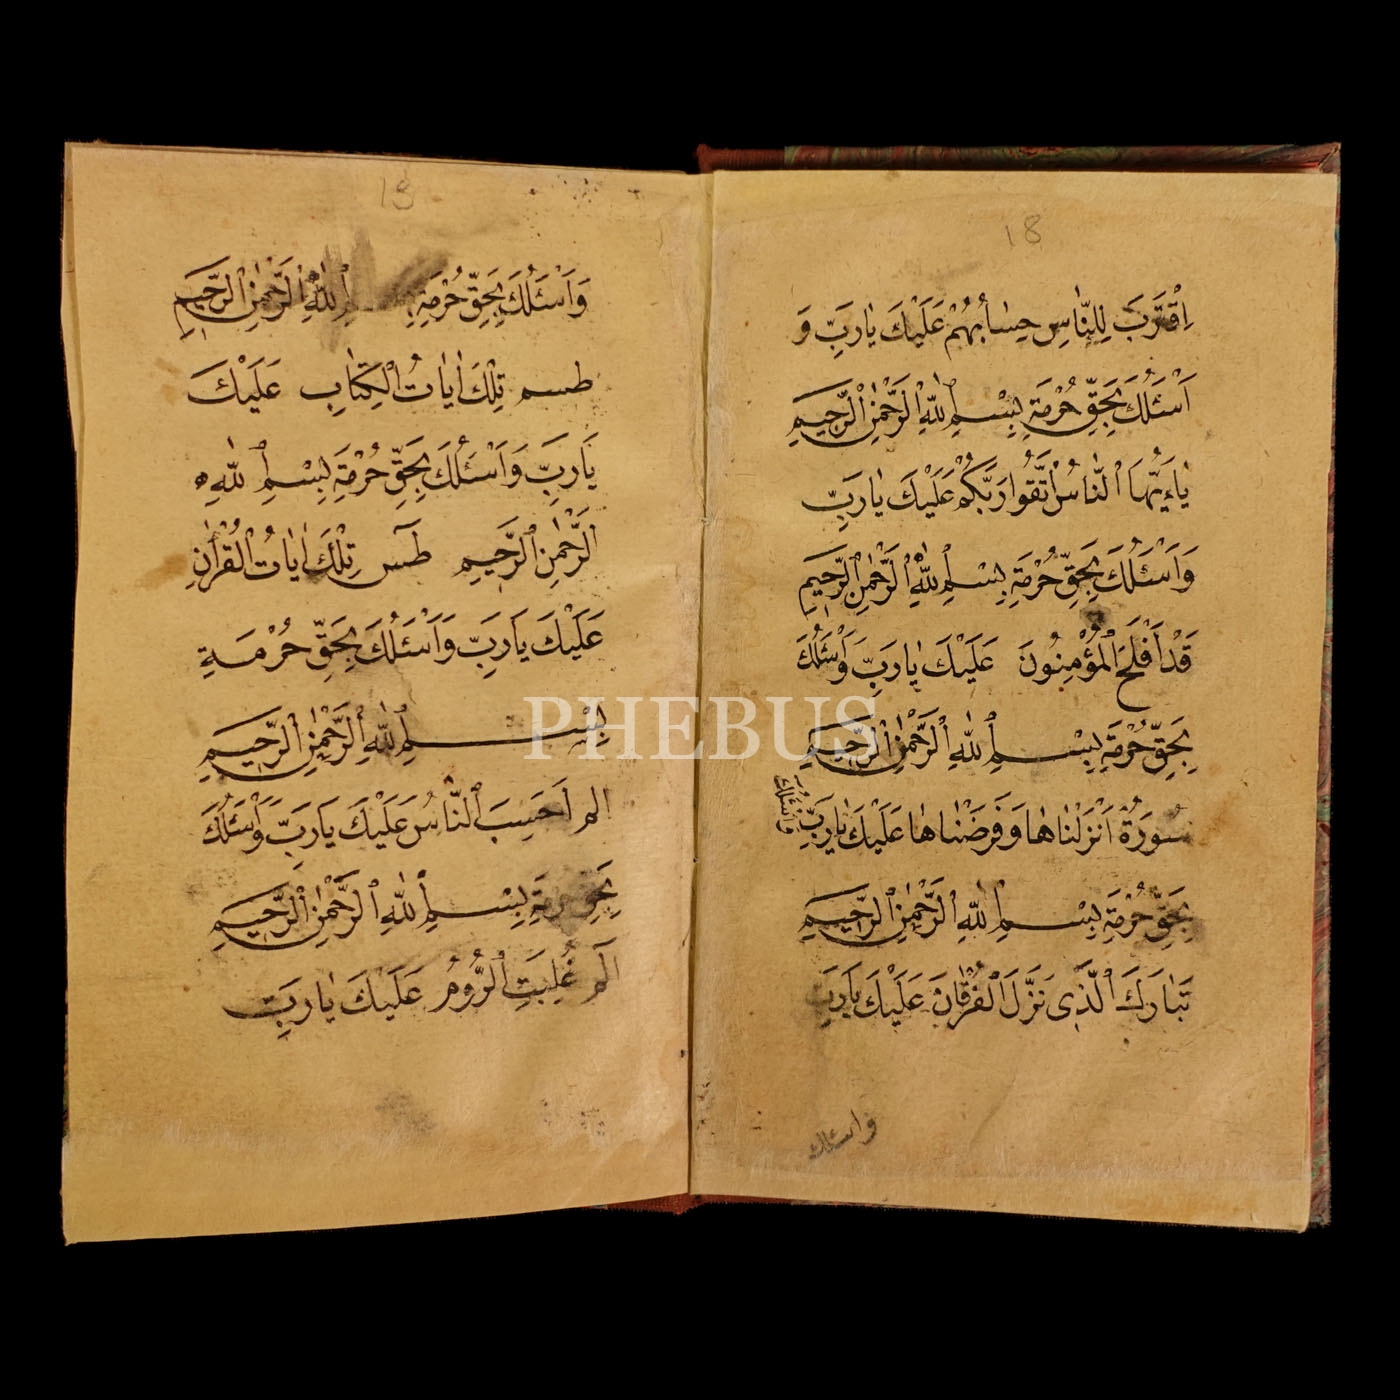 18
اِقْتَرَبَ لِلنَّاسِ حِسٰابُهُمْ عَلَيْكَ يٰارَبِّ وَ
اَسْئَلُكَ بِحَقِّ حُرْمَةِ بِسْمِ اللّٰهِ الرَّحْمٰنِ الرَّحِيمِ
يٰاءَيُّهَا النّٰاسُ اتَّقُوا رَبَّكُمْ عَلَيْكَ يٰارَبِّ
وَاَسْئَلُكَ بِحَقِّ حُرْمَةِ بِسْمِ اللّٰهِ الرَّحْمٰنِ الرَّحِيمِ
قَدْ اَفْلَحَ الْمُؤْمِنُونَ عَلَيْكَ يٰارَبِّ وَاَسْئَلُكَ
بِحَقِّ حُرْمَةِ بِسْمِ اللّٰهِ الرَّحْمٰنِ الرَّحِيمِ
سُورَةٌ اَنْزَلْنٰاهٰا وَفَرَضْنٰاهٰا عَلَيْكَ يٰارَبِّ وَاَسْئَلُكَ
بِحَقِّ حُرْمَةِ بِسْمِ اللّٰهِ الرَّحْمٰنِ الرَّحِيمِ
تَبٰارَكَ الَّذِى نَزَّلَ الْفُرْقٰانَ عَلَيْكَ يٰارَبِّ
واسئلك
19
وَاَسْئَلُكَ بِحَقِّ حُرْمَةِ اللّٰهِ الرَّحْمٰنِ الرَّحِيمِ
طسم تِلْكَ اٰيٰاتُ الْكِتٰابِ عَلَيْكَ
يَارَبِّ وَاَسْئَلُكَ بِحَقِّ حُرْمَةِ بِسْمِ اللّٰهِ
الرَّحْمٰنِ الرَّحِيمِ طٓسٓ تِلْكَ اٰيٰاتُ الْقُرْاٰنِ
عَلَيْكَ يَارَبِّ وَاَسْئَلُكَ بِحَقِّ حُرْمَةِ
بِسْمِ اللّٰهِ الرَّحْمٰنِ الرَّحِيمِ
الم اَحَسِبَ النّٰاسُ عَلَيْكَ يَارَبِّ وَاَسْئَلُكَ
بِحَقِّ حُرْمَةِ بِسْمِ اللّٰهِ الرَّحْمٰنِ الرَّحِيمِ
الٓم غُلِبَتِ الرُّومُ عَلَيْكَ يٰارَبِّ
PHEBUS